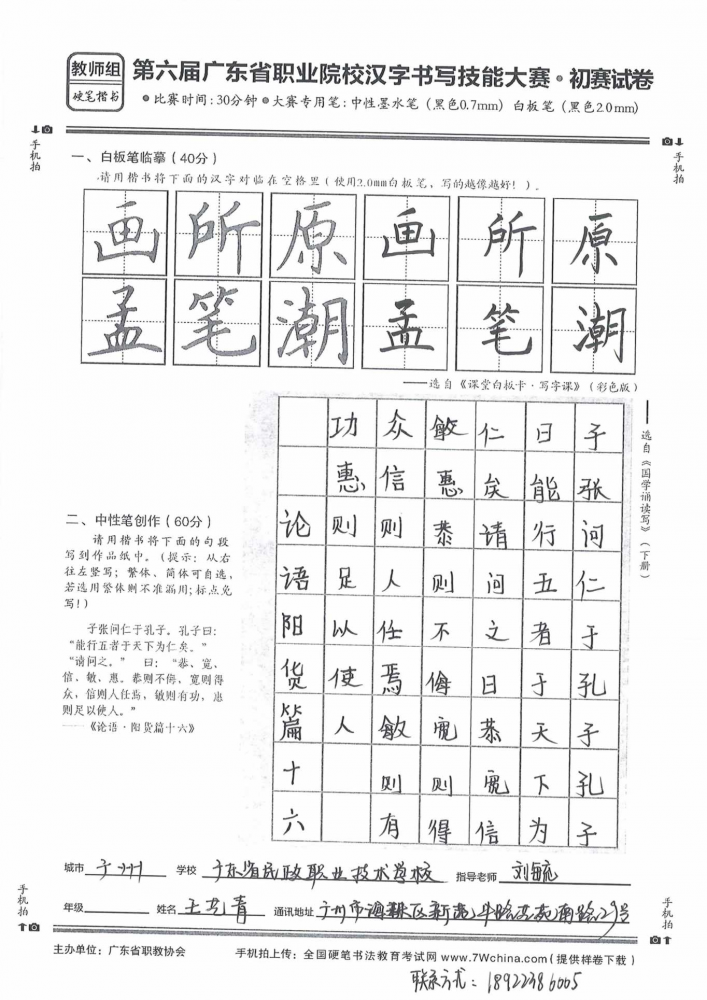 教师组
硬笔楷书
第六届广东省职业院校汉字书写技能大赛·初赛试卷
●比赛时间:30分钟●大赛专用笔:中性墨水笔(黑色0.7mm) 白板笔(黑色2.0mm)
手机拍
手机拍
一、白板笔临摹(40分)
请用楷书将下面的汉字对临在空格里(使用2.0mm白板笔、写的越像越好!)。
画所原画所原
孟笔潮孟笔潮
——选自《课堂白板卡·写字课》(彩色版)
二、中性笔创作(60分)
请用楷书将下面的句段
写到作品纸中。(提示:从右
往左竖写;繁体、简体可自选,
若选用繁体则不准漏用;标点免
写!)
子张问仁于孔子。孔子曰:
“能行五者于天下为仁矣。”
“请问之。” 曰:“恭、宽、
信、敏、惠。恭则不侮,宽则得
众,信则人任焉,敏则有功,惠
则足以使人。”
——《论语·阳货篇十六》
——选自《国学诵读写》(下册)
子张问仁于孔子孔子
曰能行五者于天下为
仁矣请问之曰恭宽信
敏惠恭则不侮宽则得
众信则人任焉敏则有
功惠则足以使人
论语阳货篇十六
城市 广州 学校 广东省民政职业技术学校 指导老师 刘毓
年级 姓名 王艺青 通讯地址 广州市海珠区新港中路艺苑南路29号
手机拍
手机拍
主办单位:广东省职教协会 手机拍上传:全国硬笔书法教育考试网 www.7Wchina.com(提供样卷下载)
联系方式:18922386005